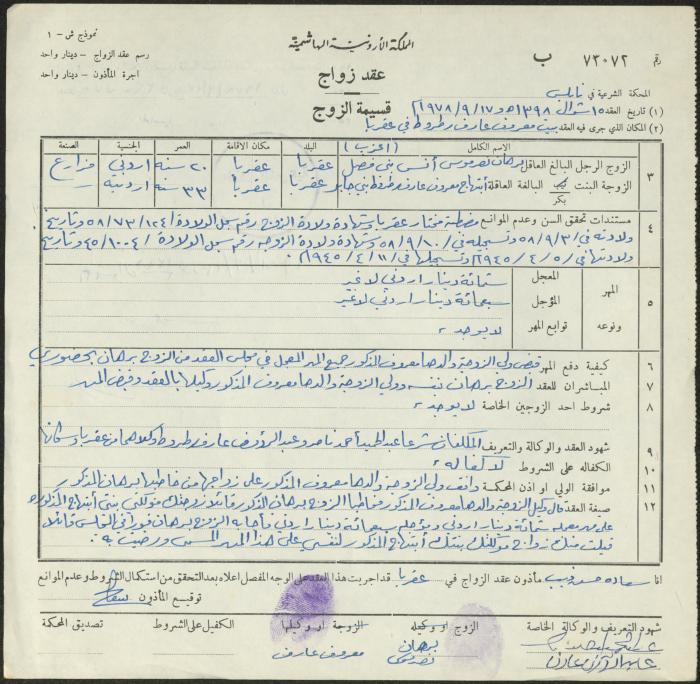 نموذج ش - ١
المملكة الأردنية الهاشمية
رقم ٧٣٠٧٢ ب
رسم عقد الزواج - دينار واحد
اجرة المأذون - دينار واحد
عقد زواج
قسيمة الزوج
المحكمة الشرعية في نابلس
(١) تاريخ العقد ١٥ شوال ١٣٩٨ هـ و ١٧/٩/١٩٧٨م
(٢) المكان الذي جرى فيه العقد بيت معروف عارف في عقربا
الاسم الكامل البلد مكان الاقامة العمر الجنسية الصنعة
٣ الزوج الرجل البالغ العاقل برهان بني فضل عقربا عقربا ٢٠ سنه اردني مزارع
الزوجة البنت البالغة العاقلة أبتهاج معروف عارف بني جابر عقربا عقربا ٣٣ سنه اردنيه
بكر
٤ مستندات تحقق السن وعدم الموانع مضبطة مختار عقربا وشهادة ولادة الزوج رقم سجل الولادة ١٢٤/٧٣/٥٨ وتاريخ
ولادته في ٣/٩/٥٨ وتسجيله في ١٠/٩/٥٨ وشهادة ولادة الزوجه رقم سجل الولادة ١٠٠٤/٤٥ وتاريخ
ولادتها في ٥/٤/١٩٤٥ وتسجيلها في ١١/٤/١٩٤٥م
المعجل ستمائة دينار اردني لا غير
٥ المهر المؤجل سبعمائة دينار اردني لا غير
ونوعه توابع المهر لا يوجد
٦ كيفية دفع المهر قبض ولي الزوجة والدها معروف المذكور جميع المهر المعجل في مجلس العقد من الزوج برهان بحضوري
٧ المباشران للعقد الزوج برهان نفسه وولي الزوجة والدها معروف المذكور وكيلها بالعقد وقبض المهر
٨ شروط احد الزوجين الخاصة لا يوجد
٩ شهود العقد والوكالة والتعريف المكلفان شرعا عبد أحمد ناصر وعبد الرؤوف عارف وكلاهما من عقربا وسكانها
١٠ الكفاله على الشروط لا كفاله
١١ موافقة الولي او اذن المحكمة وافق ولي الزوجة والدها معروف المذكور على زواجها من خاطبها برهان المذكور
١٢ صيغة العقد قال وكيل الزوجة والدها معروف المذكور مخاطبا الزوج برهان المذكور قائلا زوجتك موكلتي بنتي أبتهاج المذكوره
على مهر معجله ستمائة دينار اردني ومؤجله سبعمائة دينار اردني فأجابه الزوج برهان فورا في المجلس قائلا
قبلت منك زواج موكلتك بنتك أبتهاج المذكور لنفسي على هذا المهر المسمى ورضيت به
انا سعاده مأذون عقد الزواج في عقربا قد اجريت هذا العقد على الوجه المفصل اعلاه بعد التحقق من استكمال الشروط وعدم الموانع
توقيع المأذون
شهود التعريف والوكالة الخاصة الزوج او وكيله الزوجة او وكيلها الكفيل على الشروط تصديق المحكمة
برهان
معروف عارف